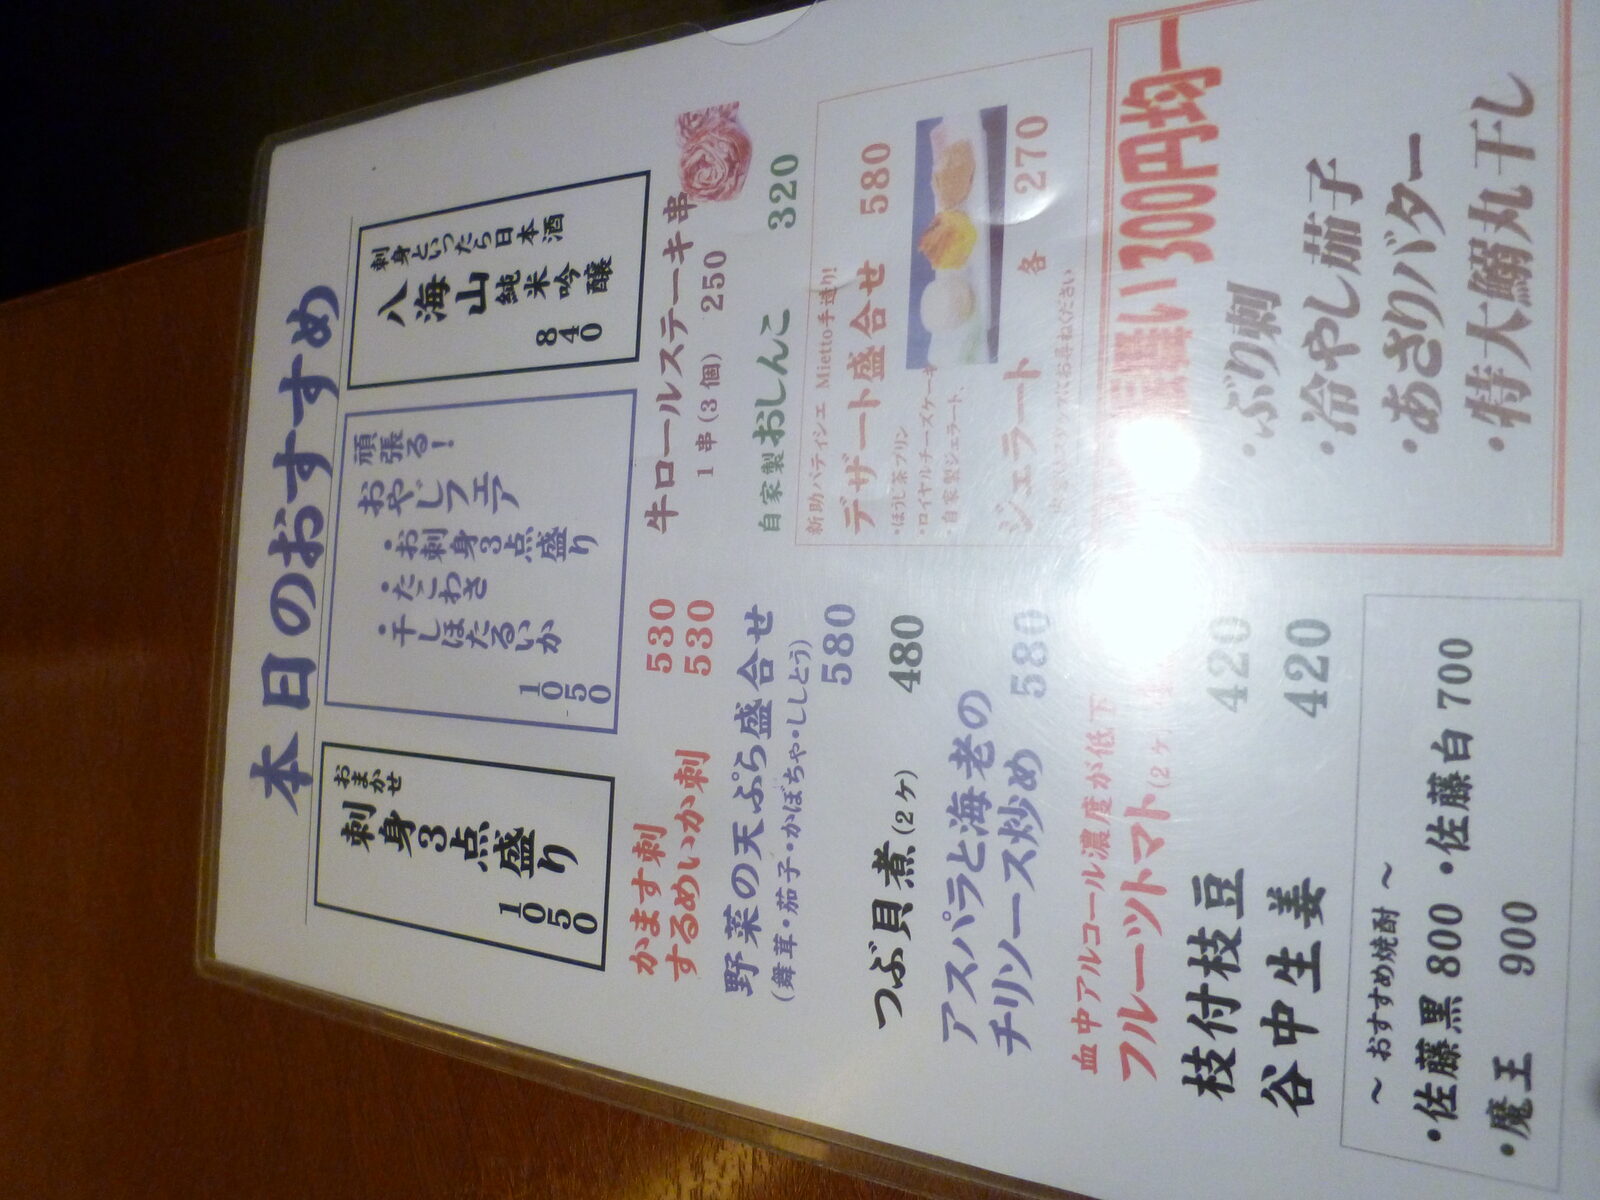 本日のおすすめ
おまかせ
刺身3点盛り
1050
頑張る!
おやじフェア
・お刺身3点盛り
・たこわさ
・干しほたるいか
1050
刺身といったら日本酒
八海山 純米吟醸
840
かます刺 530
するめいか刺 530
野菜の天ぷら盛合せ
(舞茸・茄子・かぼちゃ・ししとう)
580
つぶ貝煮(2ヶ) 480
アスパラと海老の
チリソース炒め 580
血中アルコール濃度が低下
フルーツトマト(2ヶ)
枝付枝豆 420
谷中生姜 420
~ おすすめ焼酎 ~
・佐藤黒 800 ・佐藤白 700
・魔王 900
牛ロールステーキ串
1串(3個) 250
自家製おしんこ 320
新助パティシエ Mietto手造り!
デザート盛合せ 580
・ほうじ茶プリン
・ロイヤルチーズケーキ
・自家製ジェラート、
ジェラート 各 270
お尋ねください
300円均一
・ぶり刺
・冷やし茄子
・あさりバター
・特大鰯丸干し